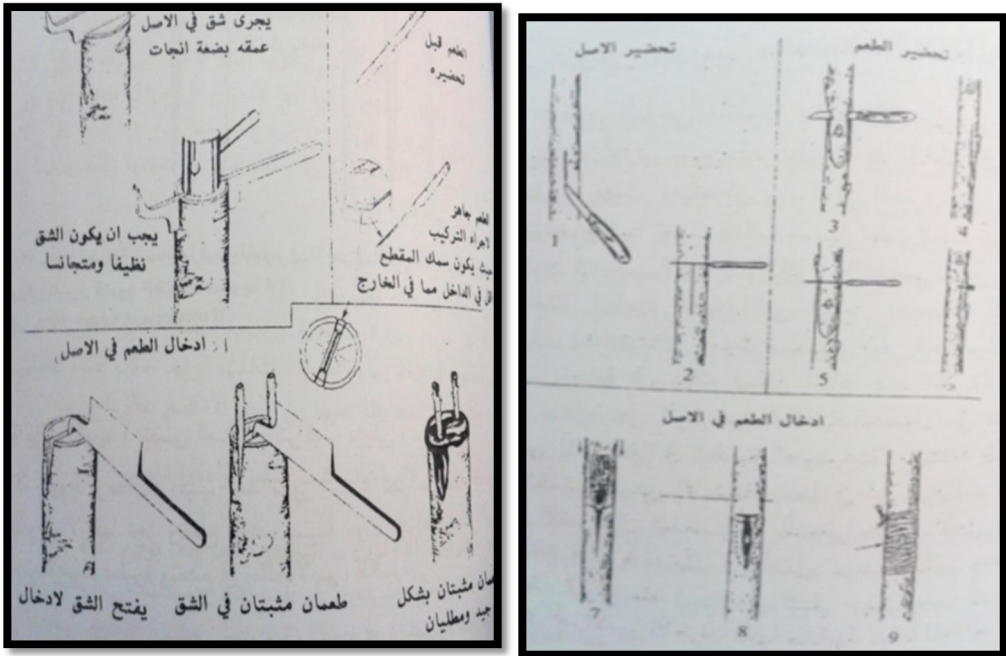 يجرى شق في الاصل
عمقه بضعة انجات
الطعم قبل
تحضيره
يجب ان يكون الشق
نظيفا ومتجانسا
الطعم جاهز
لاجراء التركيب
حيث يكون سمك المقطع
في الداخل مما في الخارج
ادخال الطعم في الاصل
يفتح الشق لادخال
طعمان مثبتان في الشق
مثبتان بشكل
جيد ومطليان
تحضير الاصل
تحضير الطعم
1
2
3
5
ادخال الطعم في الاصل
7
8
9